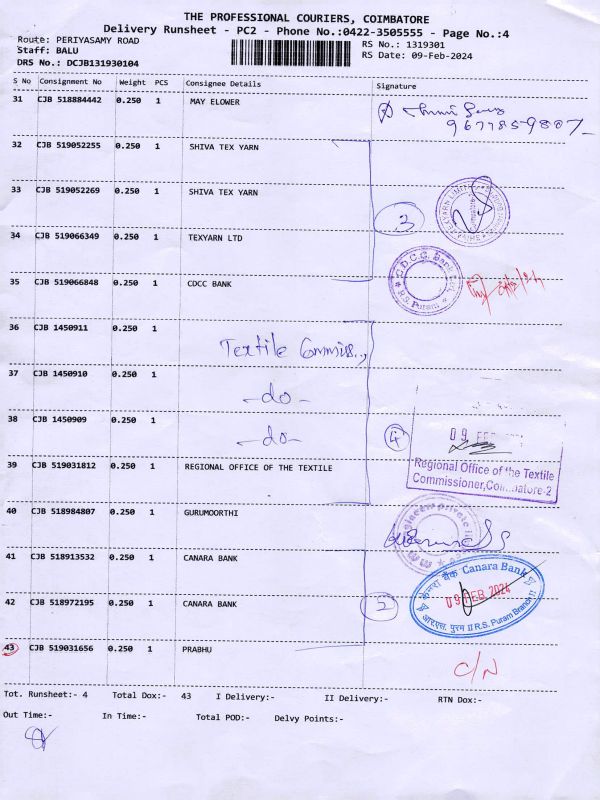 THE PROFESSIONAL COURIERS, COIMBATORE
Delivery Runsheet - PC2 - Phone No.:0422-3505555 - Page No.:4
Route: PERIYASAMY ROAD
RS No.: 1319301
Staff: BALU
RS Date: 09-Feb-2024
DRS No.: DCJB131930104
S No Consignment No Weight PCS Consignee Details Signature
31 CJB 518884442 0.250 1 MAY ELOWER
9677859807
32 CJB 519052255 0.250 1 SHIVA TEX YARN
33 CJB 519052269 0.250 1 SHIVA TEX YARN
3
34 CJB 519066349 0.250 1 TEXYARN LTD
35 CJB 519066848 0.250 1 CDCC BANK
C.D.C.C. Bank Ltd.,
R.S. Puram
36 CJB 1450911 0.250 1
Textile Commiss..,
37 CJB 1450910 0.250 1
-do-
38 CJB 1450909 0.250 1
-do-
4
09 FEB
39 CJB 519031812 0.250 1 REGIONAL OFFICE OF THE TEXTILE
Regional Office of the Textile
Commissioner, Coimbatore-2
40 CJB 518984807 0.250 1 GURUMOORTHI
41 CJB 518913532 0.250 1 CANARA BANK
केनरा बैंक Canara Bank
09 FEB 2024
आर.एस. पुरम II R.S. Puram Branch II
42 CJB 518972195 0.250 1 CANARA BANK
2
43 CJB 519031656 0.250 1 PRABHU
C/N
Tot. Runsheet:- 4 Total Dox:- 43 I Delivery:- II Delivery:- RTN Dox:-
Out Time:- In Time:- Total POD:- Delvy Points:-